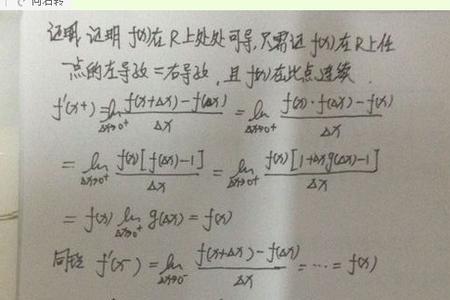 向右转
证明: 证明 f(x)在R上处处可导,只需证 f(x)在R上任
一点的左导数=右导数,且 f(x)在此点连续.
f'(x+) = lim_{Δx→0+} (f(x+Δx)-f(Δx))/Δx = lim_{Δx→0+} (f(x)·f(Δx)-f(x))/Δx
= lim_{Δx→0+} f(x)[f(Δx)-1]/Δx = lim_{Δx→0+} f(x)[1+Δxg(Δx)-1]/Δx
= f(x) lim_{Δx→0+} g(Δx) = f(x)
同理 f'(x-) = lim_{Δx→0-} (f(x+Δx)-f(Δx))/Δx = ... = f(x)